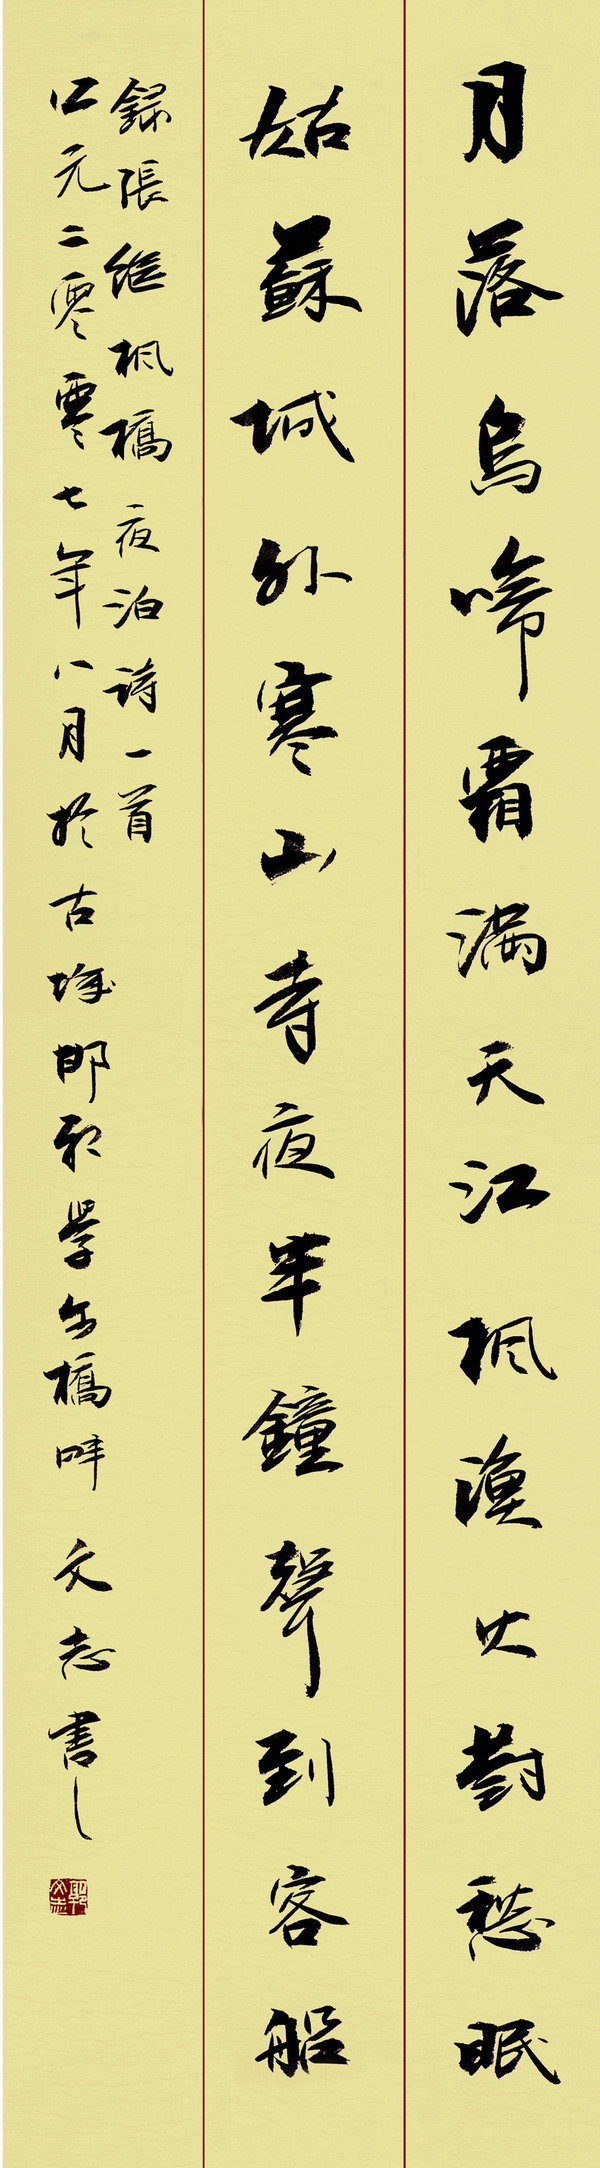 月落烏啼霜滿天江楓漁火對愁眠
姑蘇城外寒山寺夜半鐘聲到客船
錄張繼楓橋夜泊詩一首
公元二零零七年八月於古城邯鄲學步橋畔 文志書